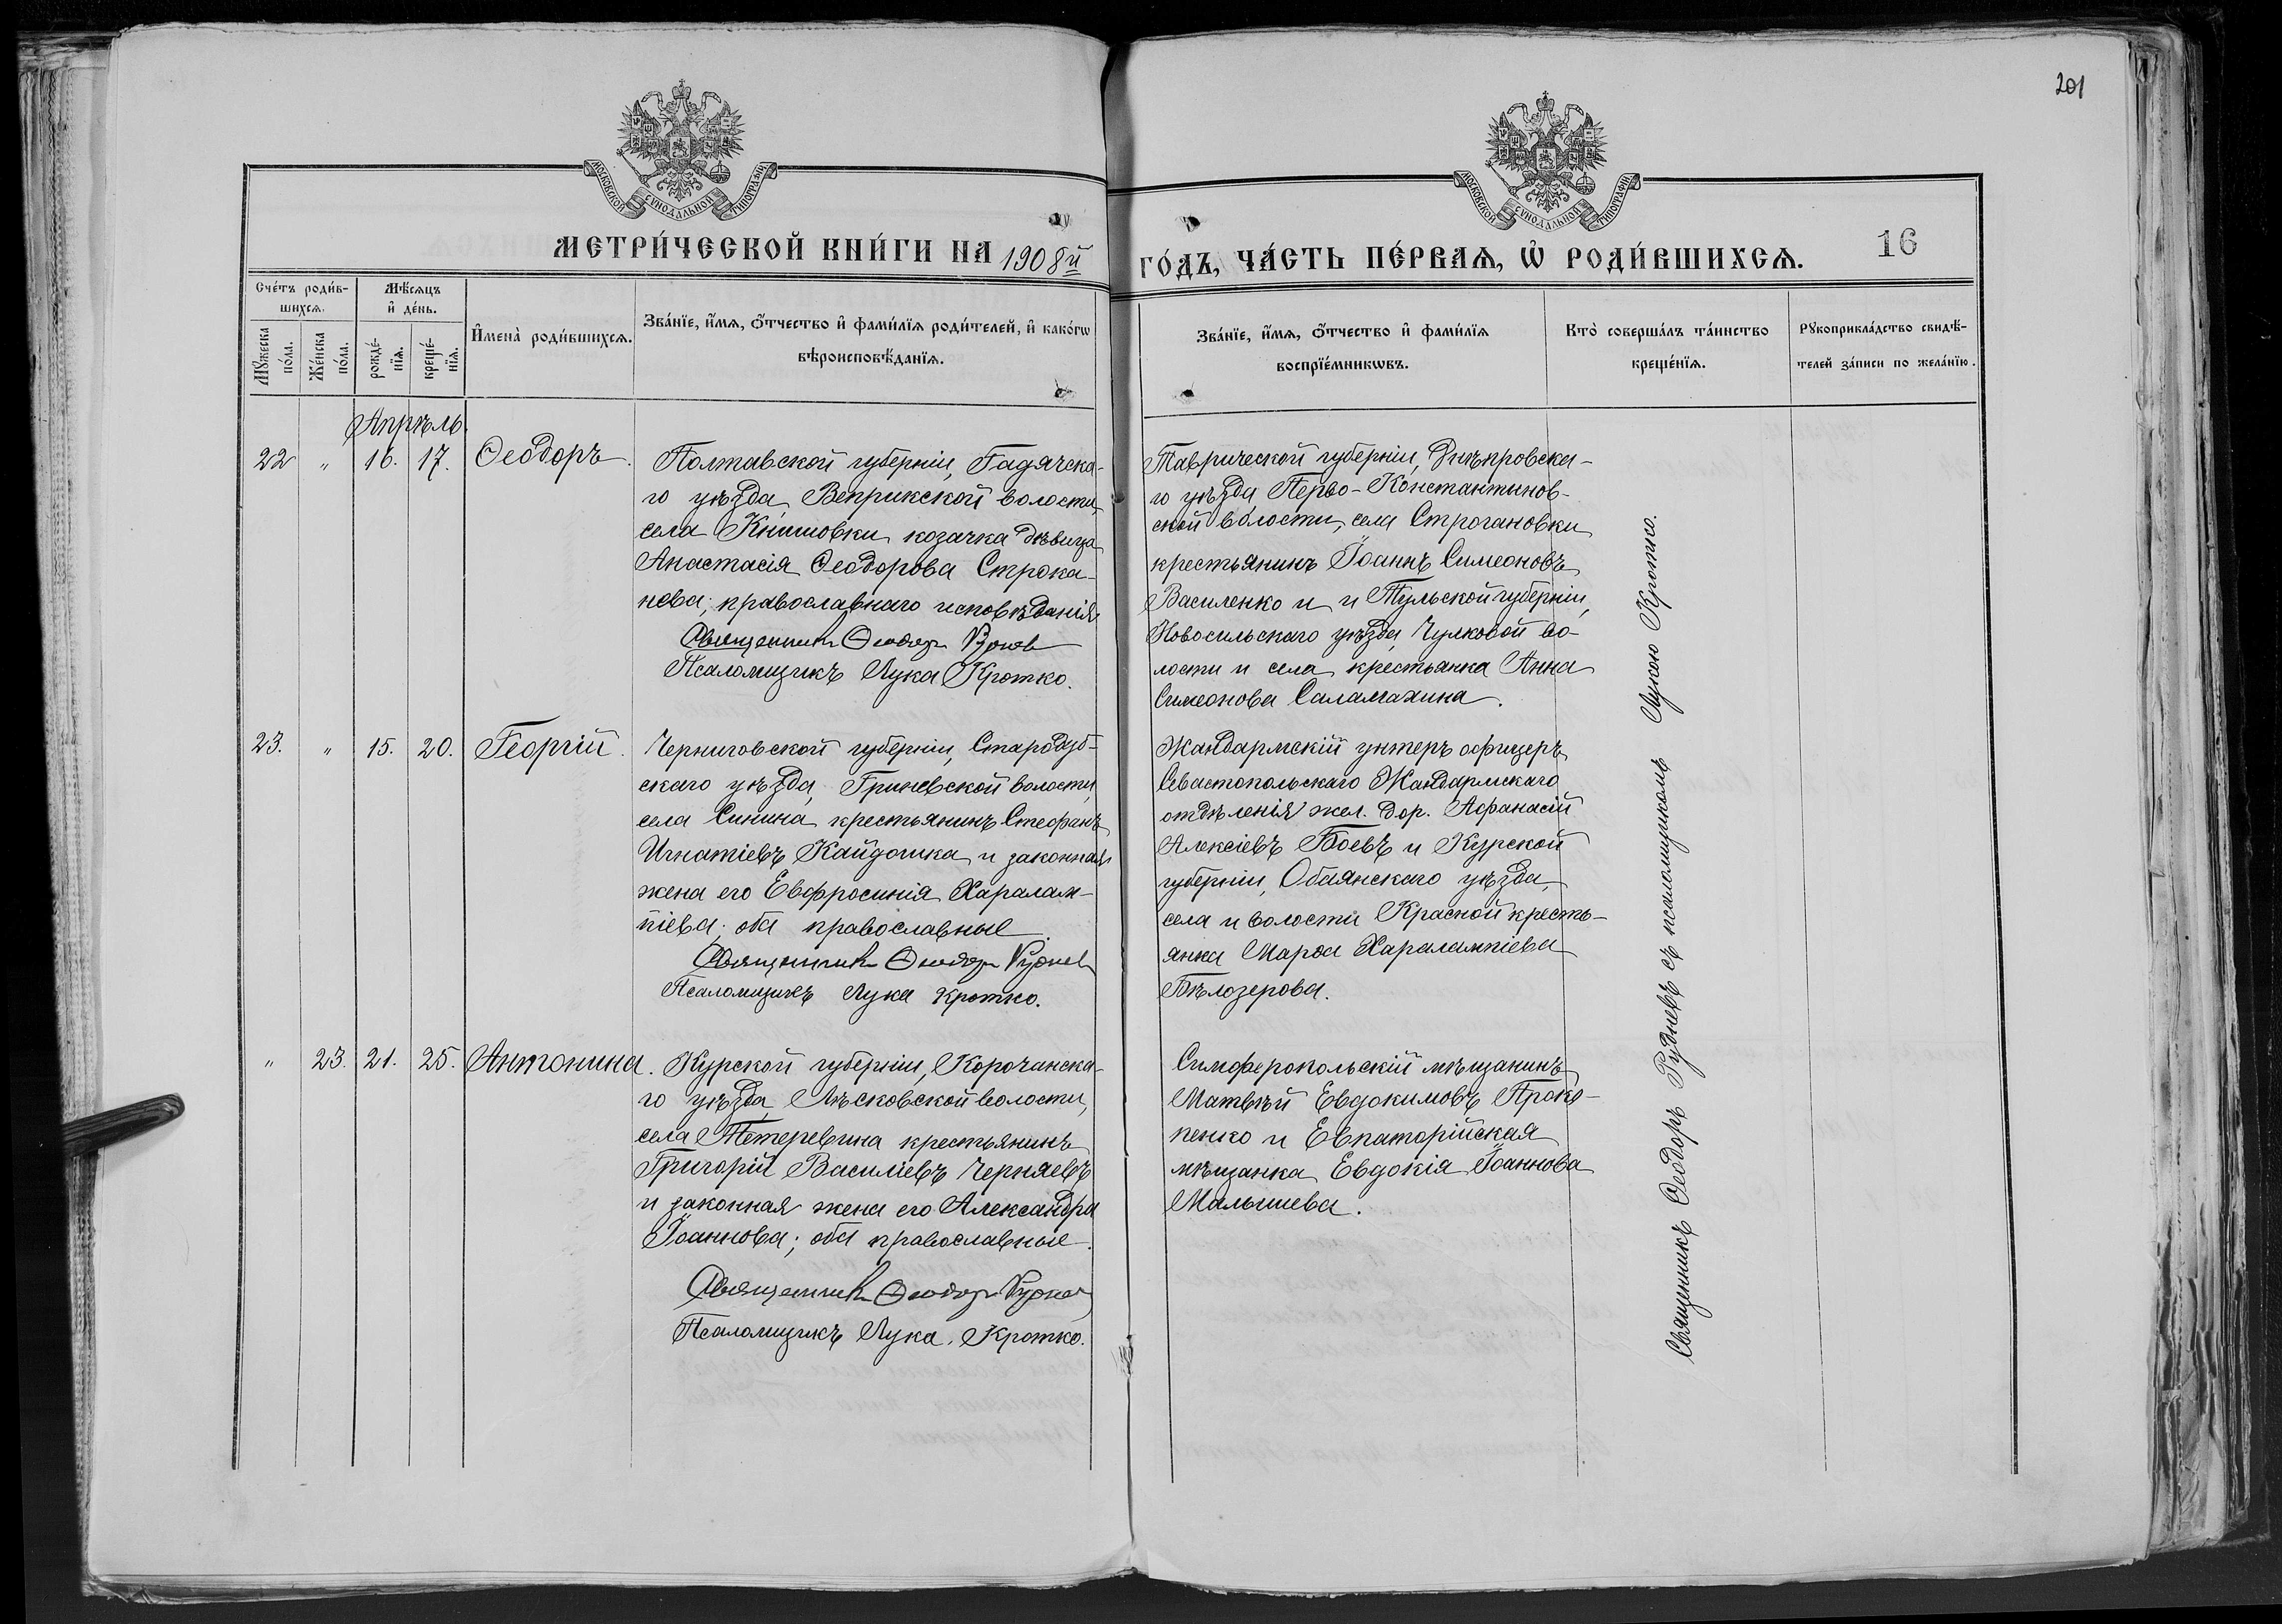 201
МОСКОВСКОЙ СУНОДАЛЬНОЙ ТИПОГРАФІИ
МОСКОВСКОЙ СУНОДАЛЬНОЙ ТИПОГРАФІИ
МЕТРИ́ЧЕСКОЙ КНИ́ГИ НА 1908й
ГО́ДЪ, ЧА́СТЬ ПЕ́РВАѦ, Ѡ҆ РОДИ́ВШИХСѦ.
16
Сче́тъ роди́в-
шихсѧ.
Мѣ́сѧцъ
и҆ де́нь.
Мꙋ́жеска
по́ла.
Же́нска
по́ла.
рожде́-
нїѧ.
креще́-
нїѧ.
И҆мена̀ роди́вшихсѧ.
Зва́нїе, и҆́мѧ, ѻ҆́тчество и҆ фами́лїѧ роди́телей, и҆ како́гѡ
вѣроисповѣ́данїѧ.
Зва́нїе, и҆́мѧ, ѻ҆́тчество и҆ фами́лїѧ
воспрїе́мникѡвъ.
Кто̀ соверша́лъ та́инство
креще́нїѧ.
Рꙋкоприкла́дство свидѣ́-
телей за́писи по жела́нїю.
Апрѣль
22 " 16. 17. Ѳеодоръ.
Полтавской губерніи, Гадячска-
го уѣзда, Веприкской волости,
села Книшовки козачка дѣвица
Анастасія Ѳеодорова Строка-
нева; православнаго исповѣданія
Священникъ Ѳеодоръ Руднев
Псаломщикъ Лука Кротко.
Таврической губерніи, Днѣпровска-
го уѣзда Перво-Константинов-
ской волости, села Строгановки
крестьянинъ Іоаннъ Симеоновъ
Василенко и и Тульской губерніи,
Новосильскаго уѣзда, Чулковой во-
лости и села крестьянка Анна
Симеонова Саламахина.
23. " 15. 20. Георгій.
Черниговской губерніи, Стародуб-
скаго уѣзда, Гриневской волости,
села Синина крестьянинъ Стефанъ
Игнатіевъ Кайдошка и законная
жена его Евфросинія Харалам-
піева; оба православные.
Священникъ Ѳеодоръ Руднев
Псаломщикъ Лука Кротко.
Жандармскій унтеръ офицеръ
Севастопольскаго Жандармскаго
отдѣленія жел. дор. Афанасій
Алексіевъ Боевъ и Курской
губерніи, Обоянскаго уѣзда,
села и волости Красной кресть-
янка Марѳа Харалампіева
Бѣлозерова.
" 23. 21. 25. Антонина.
Курской губерніи, Корочанска-
го уѣзда, Лѣсковской волости,
села Тетеревина крестьянинъ
Григорій Василіевъ Черняевъ
и законная жена его Александра
Іоаннова; оба православные.
Священникъ Ѳеодоръ Руднев
Псаломщикъ Лука Кротко.
Симферопольскій мѣщанинъ
Матвѣй Евдокимовъ Проко-
пенко и Евпаторійская
мѣщанка Евдокія Іоаннова
Малышева.
Священникъ Ѳеодоръ Рудневъ съ псаломщикомъ Лукою Кротко.